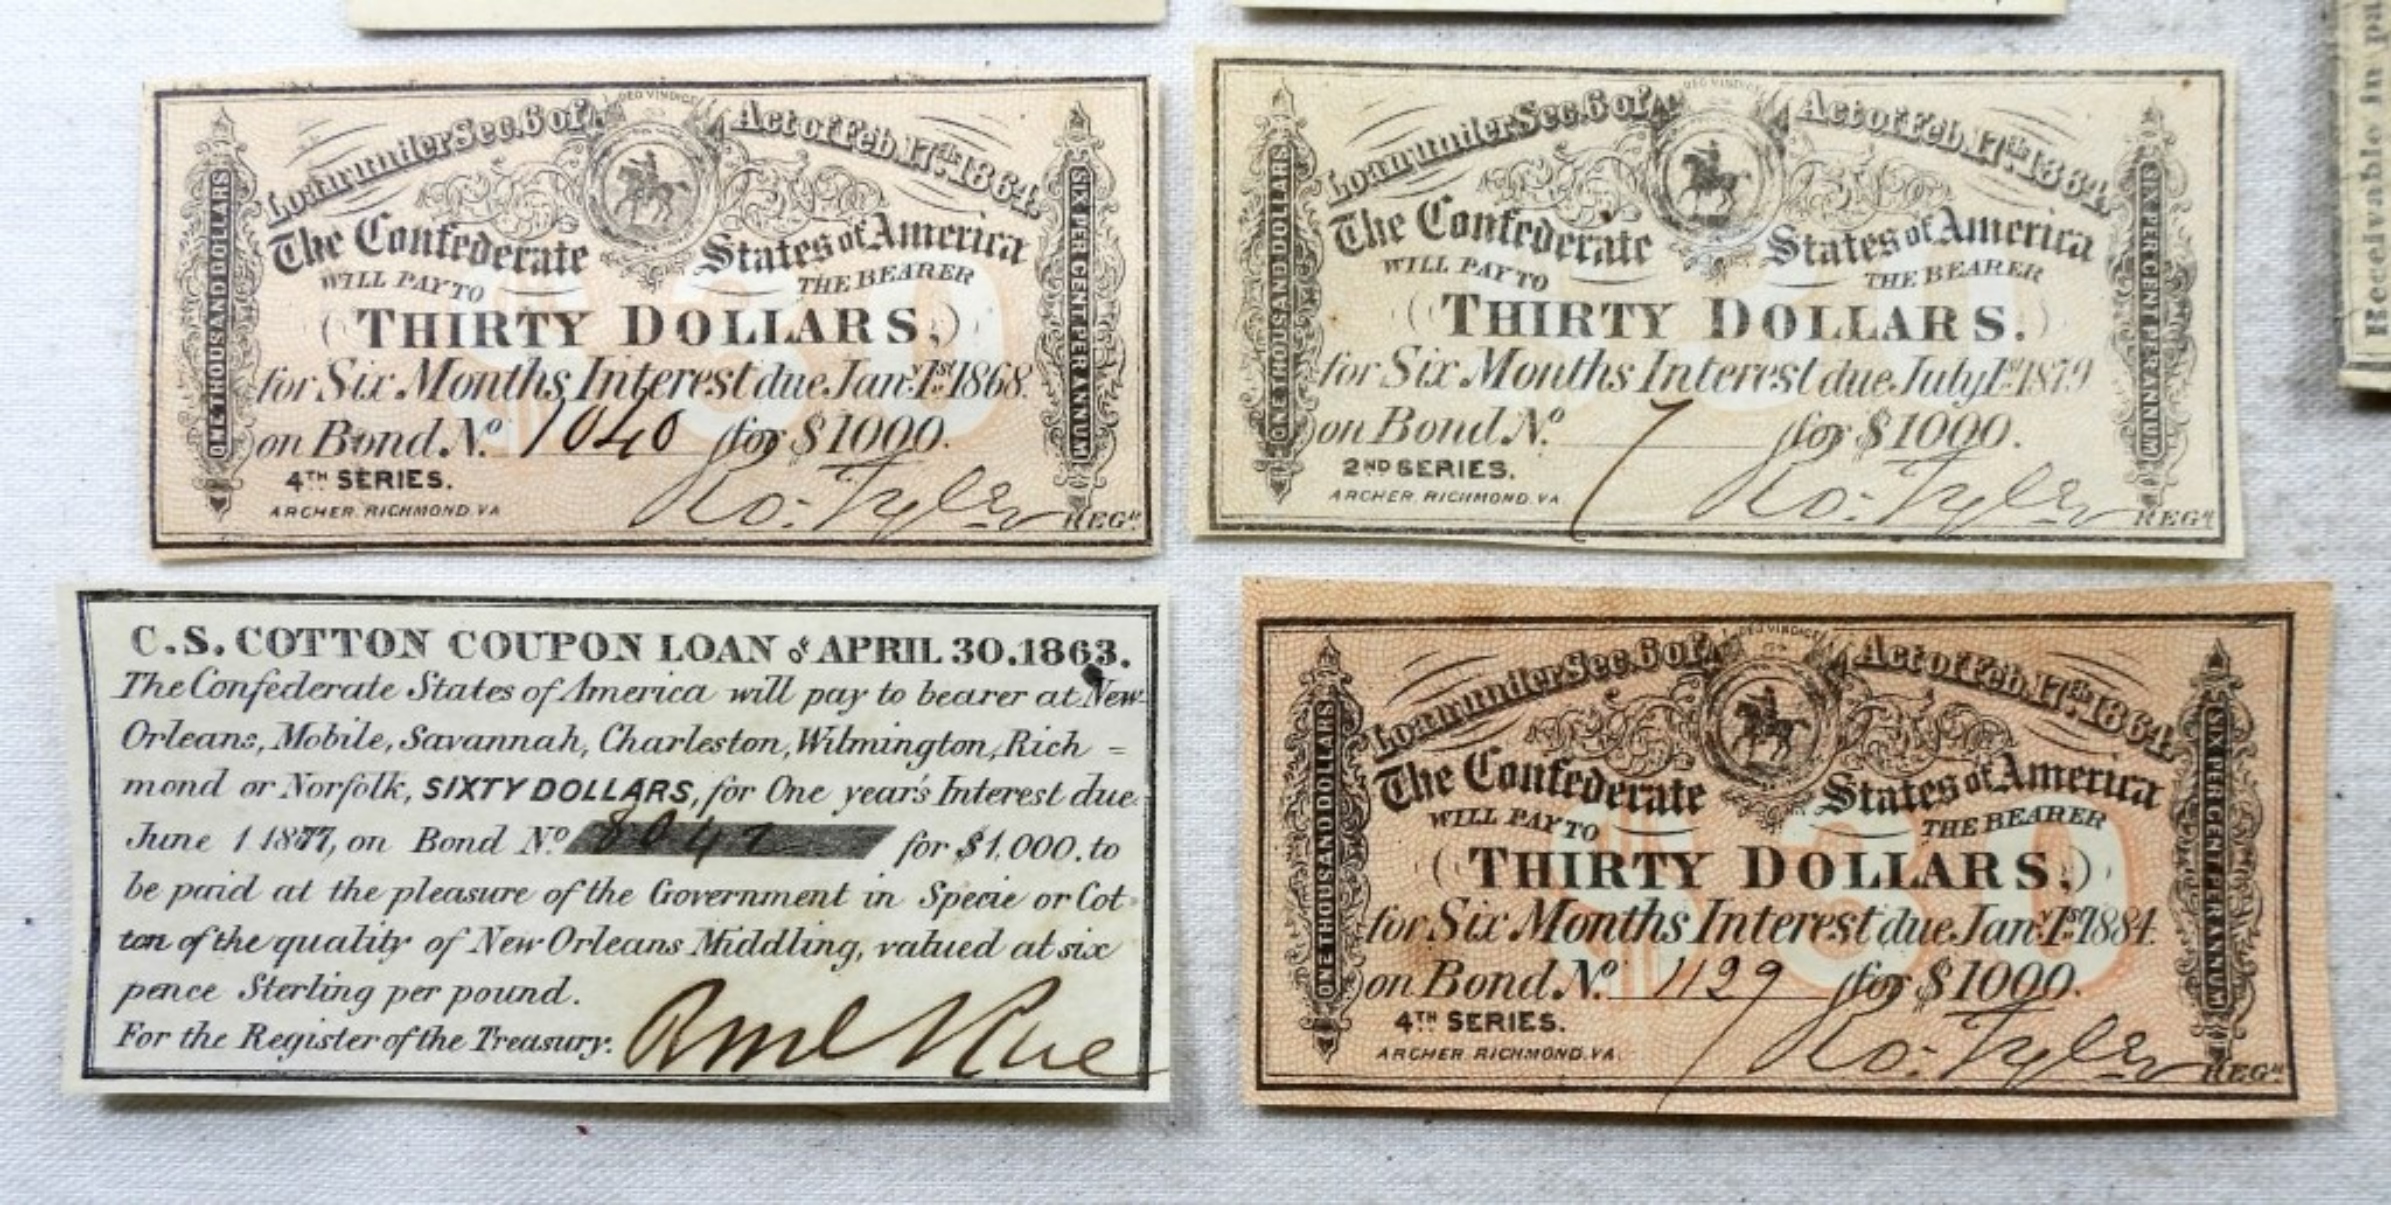 DEO VINDICE
Loan under Sec. 6 of Act of Feb. 17th 1864.
The Confederate States of America
WILL PAY TO THE BEARER
THIRTY DOLLARS,
for Six Months Interest due Jany. 1st 1868.
on Bond No. 1040 for $1000.
4TH SERIES.
ARCHER, RICHMOND, VA
Ro: Tyler REGR.
ONE THOUSAND DOLLARS
SIX PER CENT PER ANNUM
$30
DEO VINDICE
Loan under Sec. 6 of Act of Feb. 17th 1864.
The Confederate States of America
WILL PAY TO THE BEARER
THIRTY DOLLARS.
for Six Months Interest due July 1st 1879
on Bond No. 7 for $1000.
2ND SERIES.
ARCHER, RICHMOND, VA
Ro: Tyler REGR
ONE THOUSAND DOLLARS
SIX PER CENT PER ANNUM
$30
Receivable in pa
C.S. COTTON COUPON LOAN of APRIL 30. 1863.
The Confederate States of America will pay to bearer at New
Orleans, Mobile, Savannah, Charleston, Wilmington, Rich =
mond or Norfolk, SIXTY DOLLARS, for One year's Interest due
June 1 1877, on Bond No 8047 for $1,000. to
be paid at the pleasure of the Government in Specie or Cot-
ton of the quality of New Orleans Middling, valued at six
pence Sterling per pound.
For the Register of the Treasury.
DEO VINDICE
Loan under Sec. 6 of Act of Feb. 17th 1864.
The Confederate States of America
WILL PAY TO THE BEARER
THIRTY DOLLARS,
for Six Months Interest due Jany. 1st 1884.
on Bond No. 1129 for $1000.
4TH SERIES.
ARCHER, RICHMOND, VA.
Ro: Tyler REGR.
ONE THOUSAND DOLLARS
SIX PER CENT PER ANNUM
$30